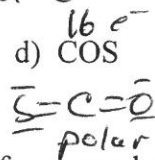 16 e⁻
d) COS
S–C=O
polar